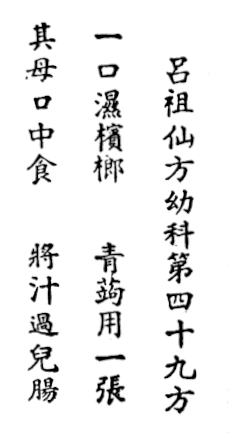 呂祖仙方幼科第四十九方
一口濕檳榔　青蒟用一張
其母口中食　將汁過兒腸